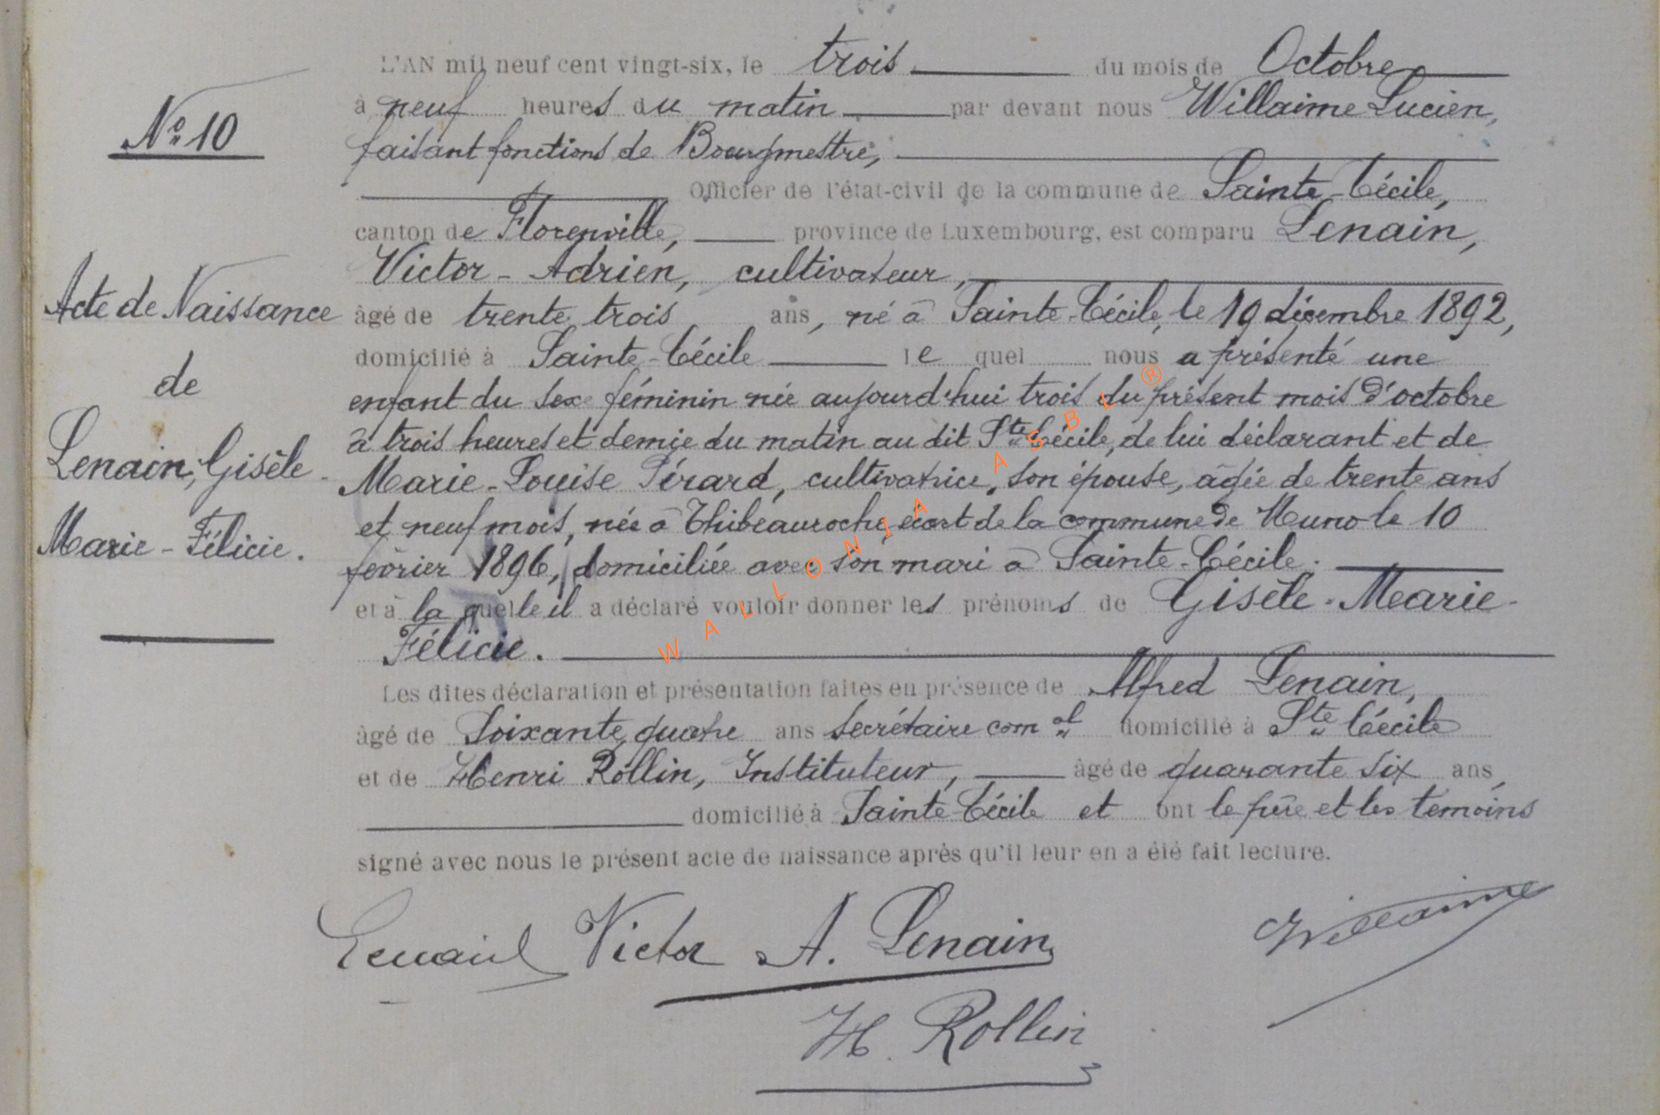 L'AN mil neuf cent vingt-six, le trois du mois de Octobre
à neuf heures du matin par devant nous Willaime Lucien,
faisant fonctions de Bourgmestre,
Officier de l'état-civil de la commune de Sainte-Cécile,
canton de Florenville, province de Luxembourg, est comparu Lenain,
Victor-Adrien, cultivateur,
âgé de trente trois ans, né à Sainte-Cécile, le 19 décembre 1892,
domicilié à Sainte-Cécile le quel nous a présenté une
enfant du sexe féminin née aujourd'hui trois du présent mois d'octobre
à trois heures et demie du matin au dit Ste Cécile, de lui déclarant et de
Marie-Louise Pérard, cultivatrice, son épouse, âgée de trente ans
et neuf mois, née à Thibeauroche, écart de la commune de Muno le 10
février 1896, domiciliée avec son mari à Sainte-Cécile.
et à la quelle il a déclaré vouloir donner les prénoms de Gisèle-Marie-
Félicie.
Les dites déclaration et présentation faites en présence de Alfred Lenain,
âgé de Soixante quatre ans secrétaire comal domicilié à Ste Cécile
et de Henri Rollin, Instituteur, âgé de quarante six ans,
domicilié à Sainte-Cécile et ont le père et les témoins
signé avec nous le présent acte de naissance après qu'il leur en a été fait lecture.
Lenain Victor A. Lenain Willaime
H. Rollin
No 10
Acte de Naissance
de
Lenain, Gisèle-
Marie-Félicie.
WALLONIA ASBL ®